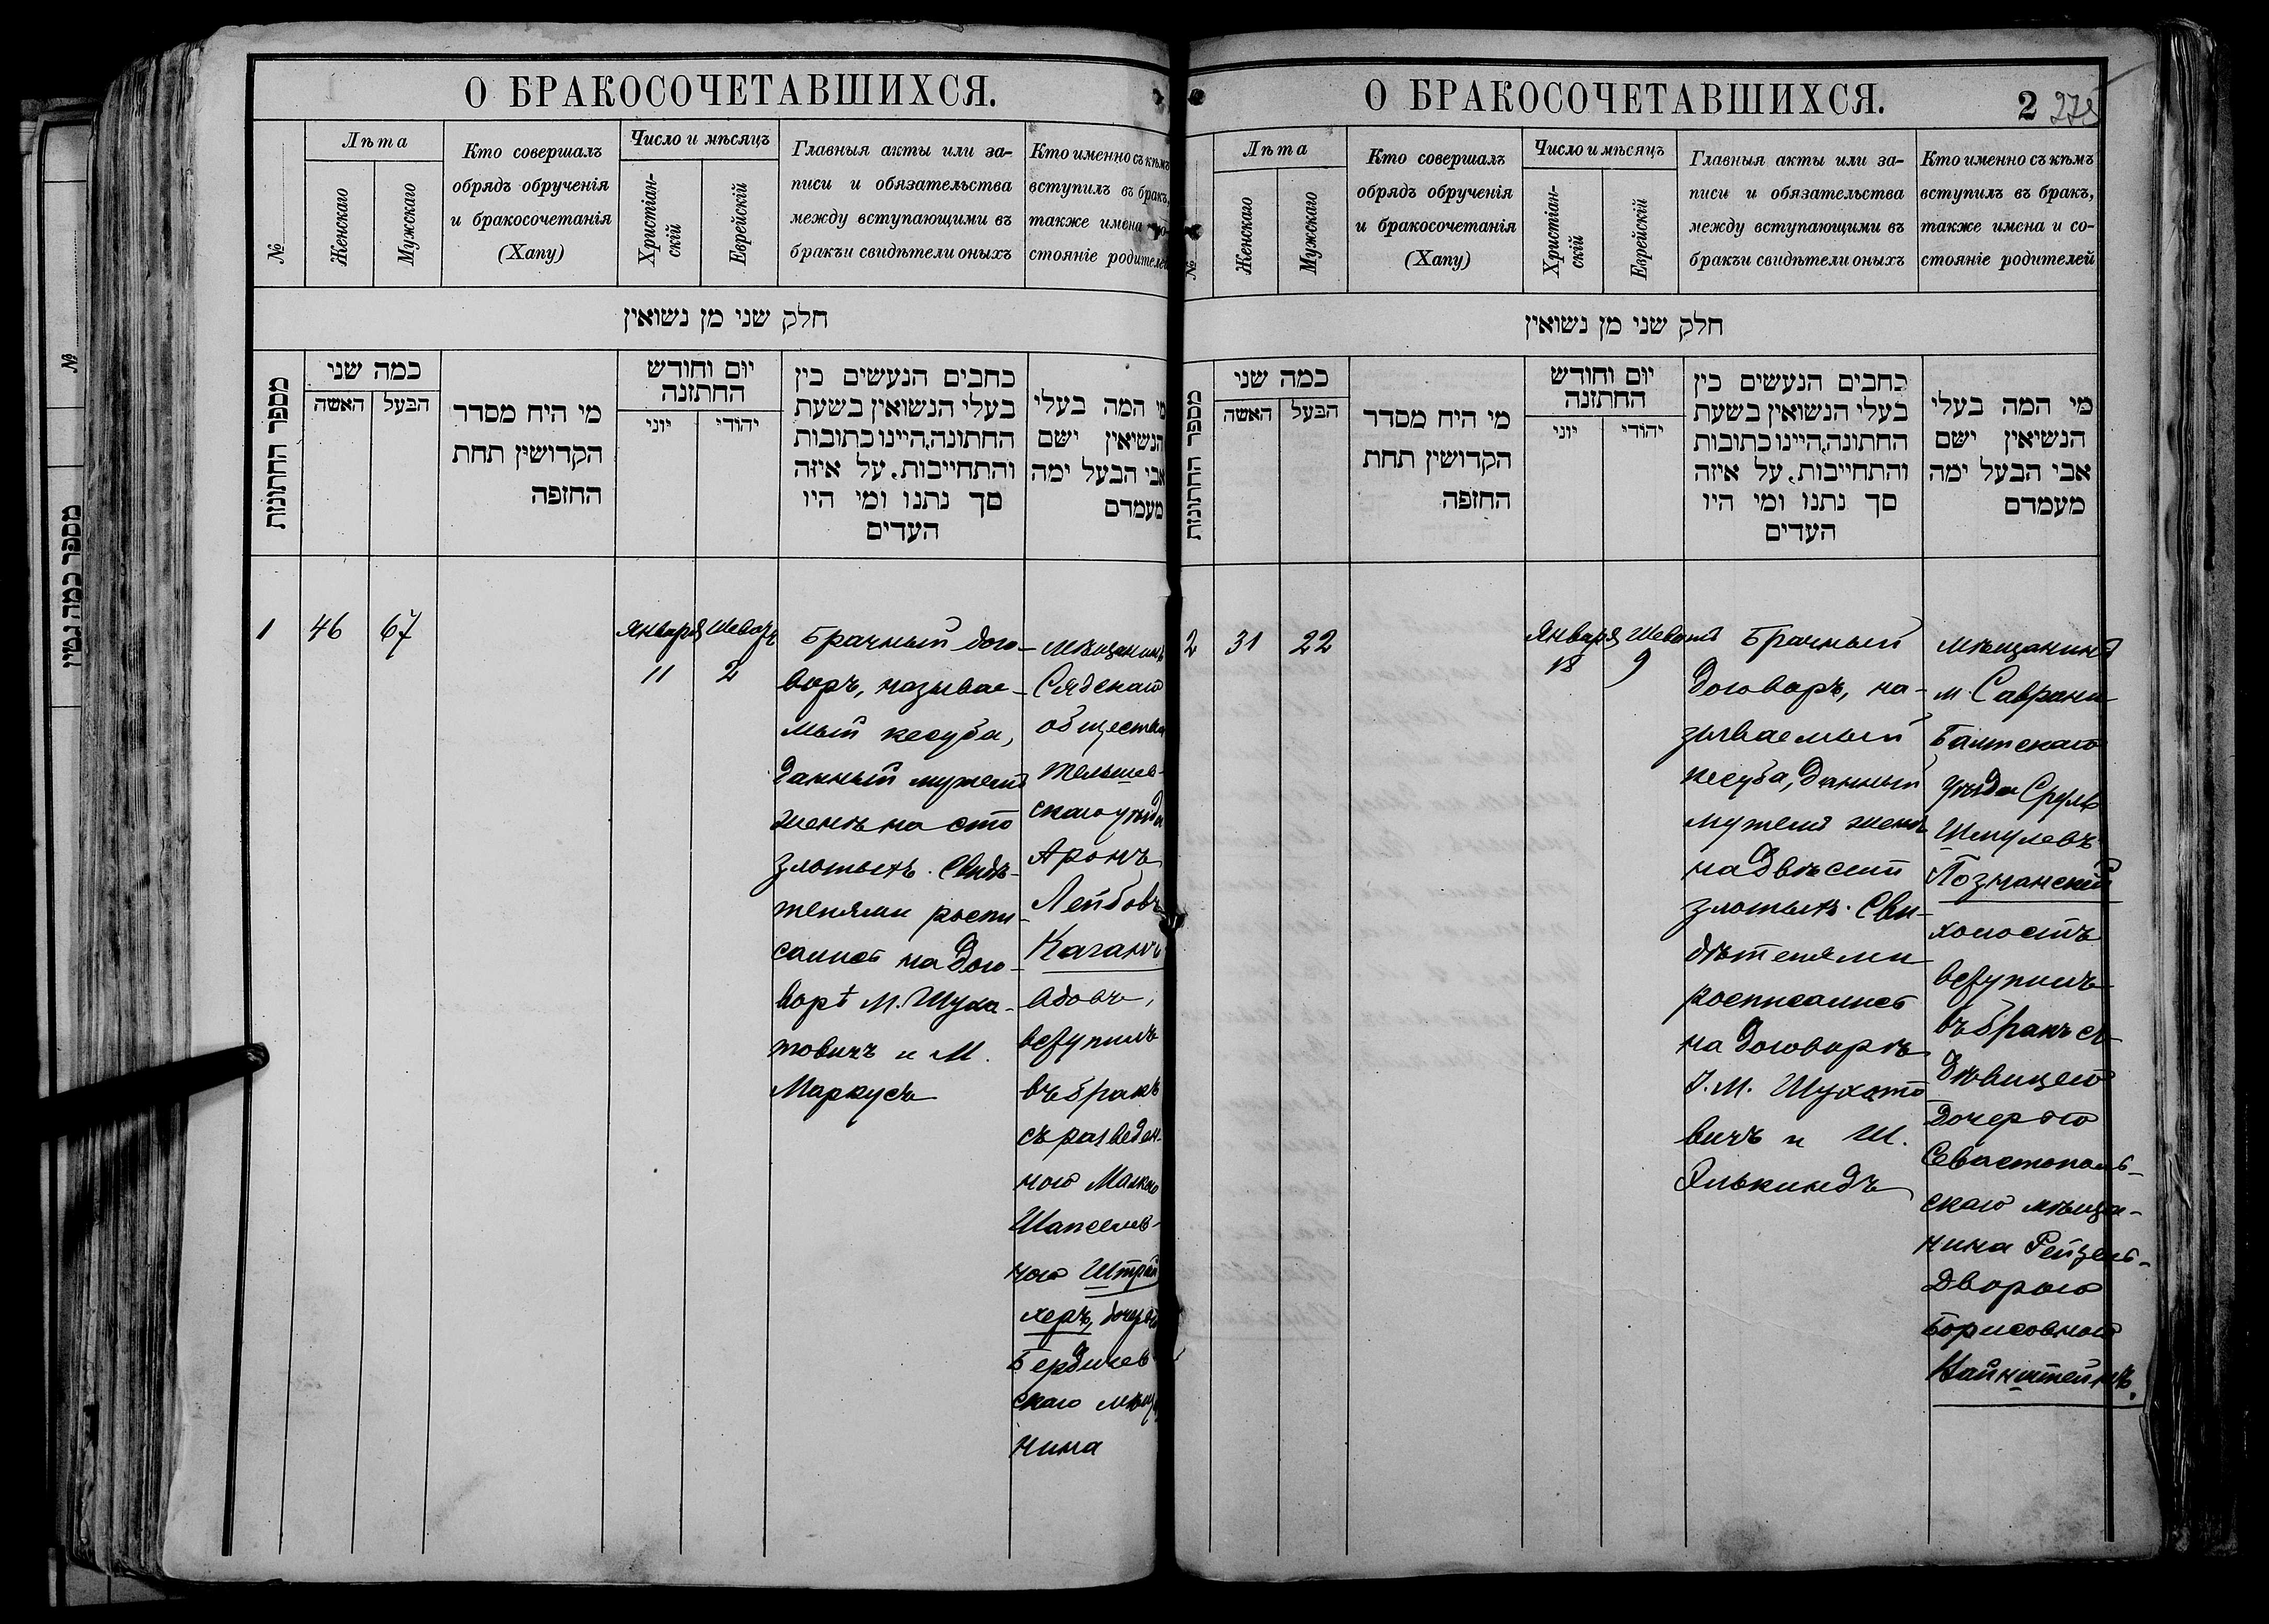 О БРАКОСОЧЕТАВШИХСЯ.
№
Лѣта
Женскаго
Мужскаго
Кто совершалъ
обрядъ обрученія
и бракосочетанія
(Хапу)
Число и мѣсяцъ
Христіан-
скій
Еврейскій
Главныя акты или за-
писи и обязательства
между вступающими въ
бракъи свидѣтели оныхъ
Кто именно съ кѣмъ
вступилъ въ бракъ,
также имена
стояніе родителей
חלק שני מן נשואין
מספר החתונות
כמה שני
האשה
הבעל
מי היח מסדר
הקדושין תחת
החופה
יום וחודש
החתונה
יוני
יהודי
כחבים הנעשים כין
בעלי הנשואין בשעת
החתונה,היינו כתובות
והתחייבות. על איזה
סך נתנו ומי היו
העדים
מי המה בעלי
הנשיאין ישם
אבי הבעל ימה
מעמדם
1
46
67
Января
11
Шеватъ
2
Брачный дого-
воръ, называе-
мый кесуба,
данный мужемъ
женѣ на сто
злотыхъ. Свидѣ-
телями роспи-
сались на дого-
ворѣ М. Шуха-
товичъ и М.
Маркусъ
Мѣщанинъ
Сядскаго
общества
Тельшев-
скаго уѣзда
Аронъ
Лейбовъ
Каганъ
вдовъ,
вступилъ
въ бракъ
съ разведен-
ною Малкою
Шапселев-
ною Штрай
херъ, дочерью
Бердичев
скаго мѣща
нина
О БРАКОСОЧЕТАВШИХСЯ.
2 275
№
Лѣта
Женскаго
Мужскаго
Кто совершалъ
обрядъ обрученія
и бракосочетанія
(Хапу)
Число и мѣсяцъ
Христіан-
скій
Еврейскій
Главныя акты или за-
писи и обязательства
между вступающими въ
бракъи свидѣтели оныхъ
Кто именно съ кѣмъ
вступилъ въ бракъ,
также имена и со-
стояніе родителей
חלק שני מן נשואין
מספר החתונות
כמה שני
האשה
הבעל
מי היח מסדר
הקדושין תחת
החופה
יום וחודש
החתונה
יוני
יהודי
כחבים הנעשים כין
בעלי הנשואין בשעת
החתונה,היינו כתובות
והתחייבות. על איזה
סך נתנו ומי היו
העדים
מי המה בעלי
הנשיאין ישם
אבי הבעל ימה
מעמדם
2
31
22
Января
18
Шеватъ
9
Брачный
договоръ, на-
зываемый
кесуба, данный
мужемъ женѣ
на двѣсти
злотыхъ. Сви-
дѣтелями
росписались
на договорѣ
І. М. Шухато
вичъ и Ш.
Элькиндъ
Мѣщанинъ
м. Саврани
Балтскаго
уѣзда Сруль
Шмулевъ
Познанскій
холостъ
вступилъ
въ бракъ съ
дѣвицею
дочерью
Севастополь-
скаго мѣща-
нина Рейзель-
Дворою
Борисовною
Вайнштейнъ.